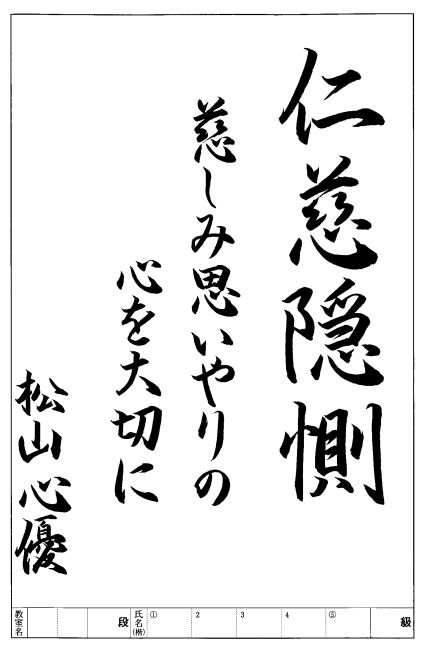 仁慈隠惻
慈しみ思いやりの
心を大切に
松山心優
級
⑤
4
3
2
①
氏名(楷)
段
教室名